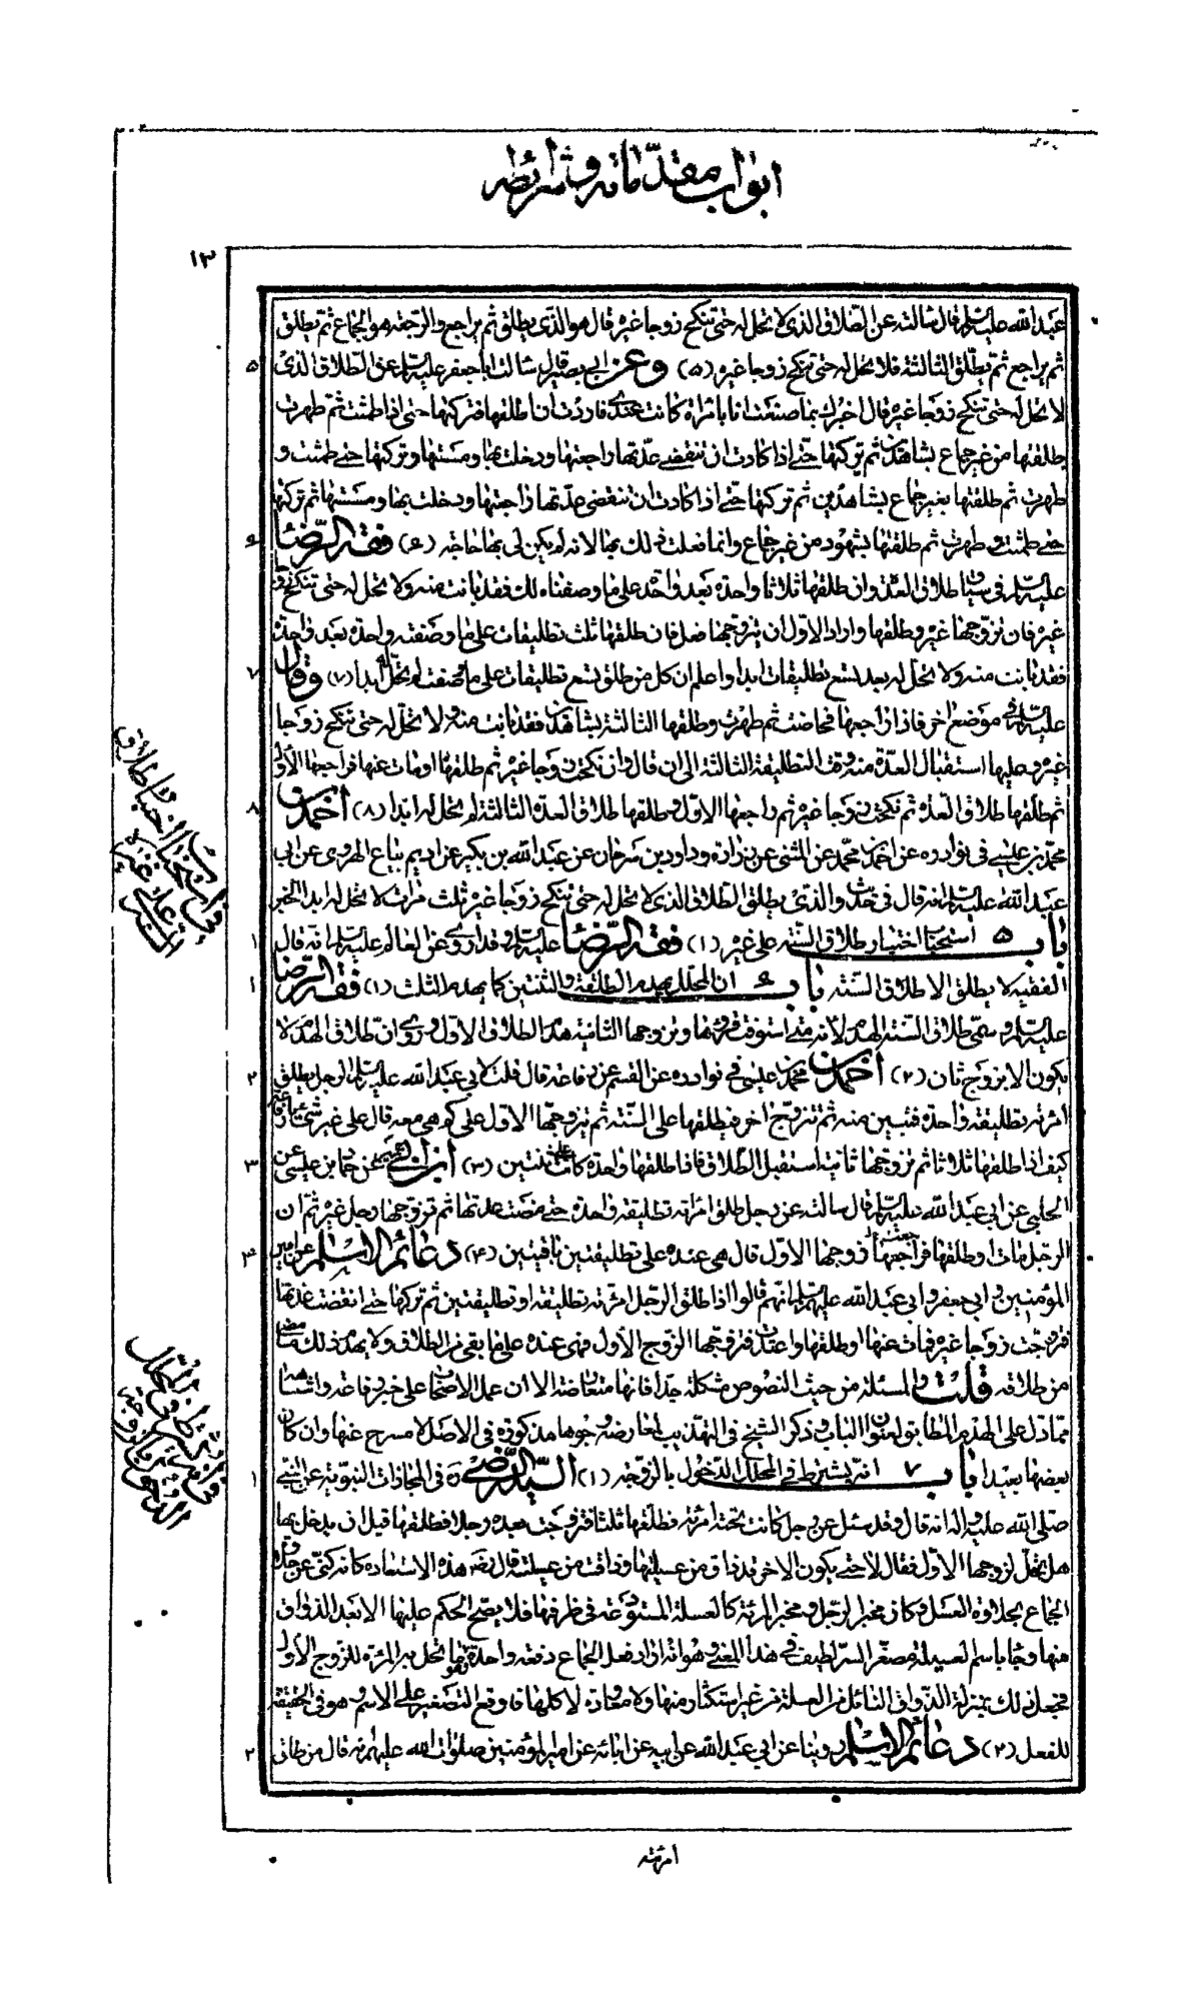 ابواب مقدماته وشرائطه
١٣
عبد الله عليه السلم قال سالته عن الطلاق الذى لا تحل له حتى تنكح زوجا غيره قال هو الذى يطلق ثم يراجع والرجعة هو الجماع ثم يطلق
ثم يراجع ثم يطلق الثالثة فلا تحل له حتى تنكح زوجا غيره (٥) وعن ابى بصير قال سالت ابا جعفر عليه السلم عن الطلاق الذى
٥
لا تحل له حتى تنكح زوجا غيره قال اخبرك بما صنعت انا بامراة كانت عندى فاردت ان اطلقها فتركتها حتى اذا طمثت ثم طهرت
طلقتها من غير جماع بشاهدين ثم تركتها حتى اذا كادت ان تنقضى عدتها راجعتها ودخلت بها ومستها وتركتها حتى طمثت و
طهرت ثم طلقتها بغير جماع بشاهدين ثم تركتها حتى اذا كادت ان تنقضى عدتها راجعتها ودخلت بها ومسستها ثم تركتها
حتى طمثت و طهرت ثم طلقتها بشهود من غير جماع وانما فعلت ذلك بها لانه لم يكن لى بها حاجة (٦) فقه الرضا
٦
عليه السلم فى سياق طلاق العدة وان طلقها ثلاثا واحدة بعد واحدة على ما وصفناه لك فقد بانت منه ولا تحل له حتى تنكح زوجا
غيره فان تزوجها غيره وطلقها واراد الاول ان يتزوجها فعل فان طلقها ثلث تطليقات على ما وصفته واحدة بعد واحدة
فقد بانت منه ولا تحل له بعد تسع تطليقات ابدا واعلم ان كل من طلق تسع تطليقات على ما وصفت لم تحل له ابدا (٧) وقال
٧
عليه السلم فى موضع اخر فاذا راجعها فحاضت ثم طهرت وطلقها الثالثة بشاهدين فقد بانت منه ولا تحل له حتى تنكح زوجا
غيره وعليها استقبال العدة منه وقت التطليقة الثالثة الى ان قال وان نكحت زوجا غيره ثم طلقها او مات عنها فراجعها الاول
ثم طلقها طلاق العدة ثم نكحت زوجا غيره ثم راجعها الاول وطلقها طلاق العدة الثالثة لم تحل له ابدا (٨) احمد بن
٨
محمد بن عيسى فى نوادره عن احمد بن محمد عن المثنى عن زرارة وداود بن سرحان عن عبد الله بن بكير عن اديم بياع الهروى عن ابى
عبد الله عليه السلم انه قال فى حديث والذى يطلق الطلاق الذى لا تحل له حتى تنكح زوجا غيره ثلث مرات لا تحل له ابدا الخبر
باب ٥ استحباب اختيار طلاق السنة على غيره (١) فقه الرضا عليه السلم وقد اروى عن العالم عليه السلم انه قال
١
الفقيه لا يطلق الا طلاق السنة باب ٦ ان المحلل يهدم الطلقة والثنتين كما يهدم الثلث (١) فقه الرضا
١
عليه السلم وسمى طلاق السنة الهدم لانه متى استوفت قروءها وتزوجها الثانية هدم الطلاق الاول وروى ان طلاق الهدم لا
يكون الا بزوج ثان (٢) احمد بن محمد بن عيسى فى نوادره عن القسم عن رفاعة قال قلت لابى عبد الله عليه السلم الرجل يطلق
٢
امرته تطليقة واحدة فتبين منه ثم تتزوج اخر فيطلقها على السنة ثم يتزوجها الاول على كم هى معه قال على غير شئ يا رفاعة
كيف اذا طلقها ثلاثا ثم تزوجها ثانية استقبل الطلاق فاذا طلقها واحدة كانت على ثنتين (٣) ابن ابى عمير عن حماد بن عيسى عن
٣
الحلبى عن ابى عبد الله عليه السلم قال سالته عن رجل طلق امراته تطليقة واحدة حتى مضت عدتها ثم تزوجها رجل غيره ثم ان
الرجل مات او طلقها فراجعها زوجها الاول قال هى عنده على تطليقتين باقيتين (٤) دعائم الاسلام عن امير
٤
المؤمنين وابى جعفر وابى عبد الله عليهم السلم انهم قالوا اذا طلق الرجل امرته تطليقة او تطليقتين ثم تركها حتى انقضت عدتها
فتزوجت زوجا غيره فمات عنها او طلقها واعتدت فتزوجها الزوج الأول فهى عنده على ما بقى من الطلاق ولا يهدم ذلك ما مضى
من طلاقه قلت والمسئلة من حيث النصوص مشكلة جدا فانها متعارضة الا ان عمل الاصحاب على خبر رفاعة واشتباهه
مما دل على الهدم المطابق لعنوان الباب وذكر الشيخ فى التهذيب لمعارضه وجوها مذكورة فى الاصل لا مسرح عنها وان كان
بعضها بعيدا باب ٧ انه يشترط فى المحلل الدخول بالزوجة (١) السيد الرضى ره فى المجازات النبوية عن النبى
١
صلى الله عليه واله انه قال وقد سئل عن رجل كانت تحته امراة فطلقها ثلثا فتزوجت بعده رجلا فطلقها قبل ان يدخل بها
هل تحل لزوجها الاول فقال لا حتى يكون الاخر قد ذاق من عسيلتها وذاقت من عسيلته قال ره هذه الاستعارة كانه كنى عن حلاوة
الجماع بحلاوة العسل وكان مخبر الرجل ومخبر المرئة كالعسلة المستودعة فى ظرفها فلا يصح الحكم عليها الا بعد الذواق
منها وجاء باسم العسيلة مصغرا لسر لطيف فى هذا المعنى وهو انه اراد فعل الجماع دفعة واحدة وهو ما تحل به المرئة للزوج الاول
فجعل ذلك بمنزلة الذواق النائل من العسلة من غير استكثار منها ولا معاودة لاكلها فاوقع التصغير على الاسم وهو فى الحقيقة
للفعل (٢) دعائم الاسلام روينا عن ابى عبد الله عن ابيه عن ابائه عن امير المؤمنين صلوات الله عليهم انه قال من طلق
٢
امرئته
باب استحباب اختيار طلاق
السنة على غيره